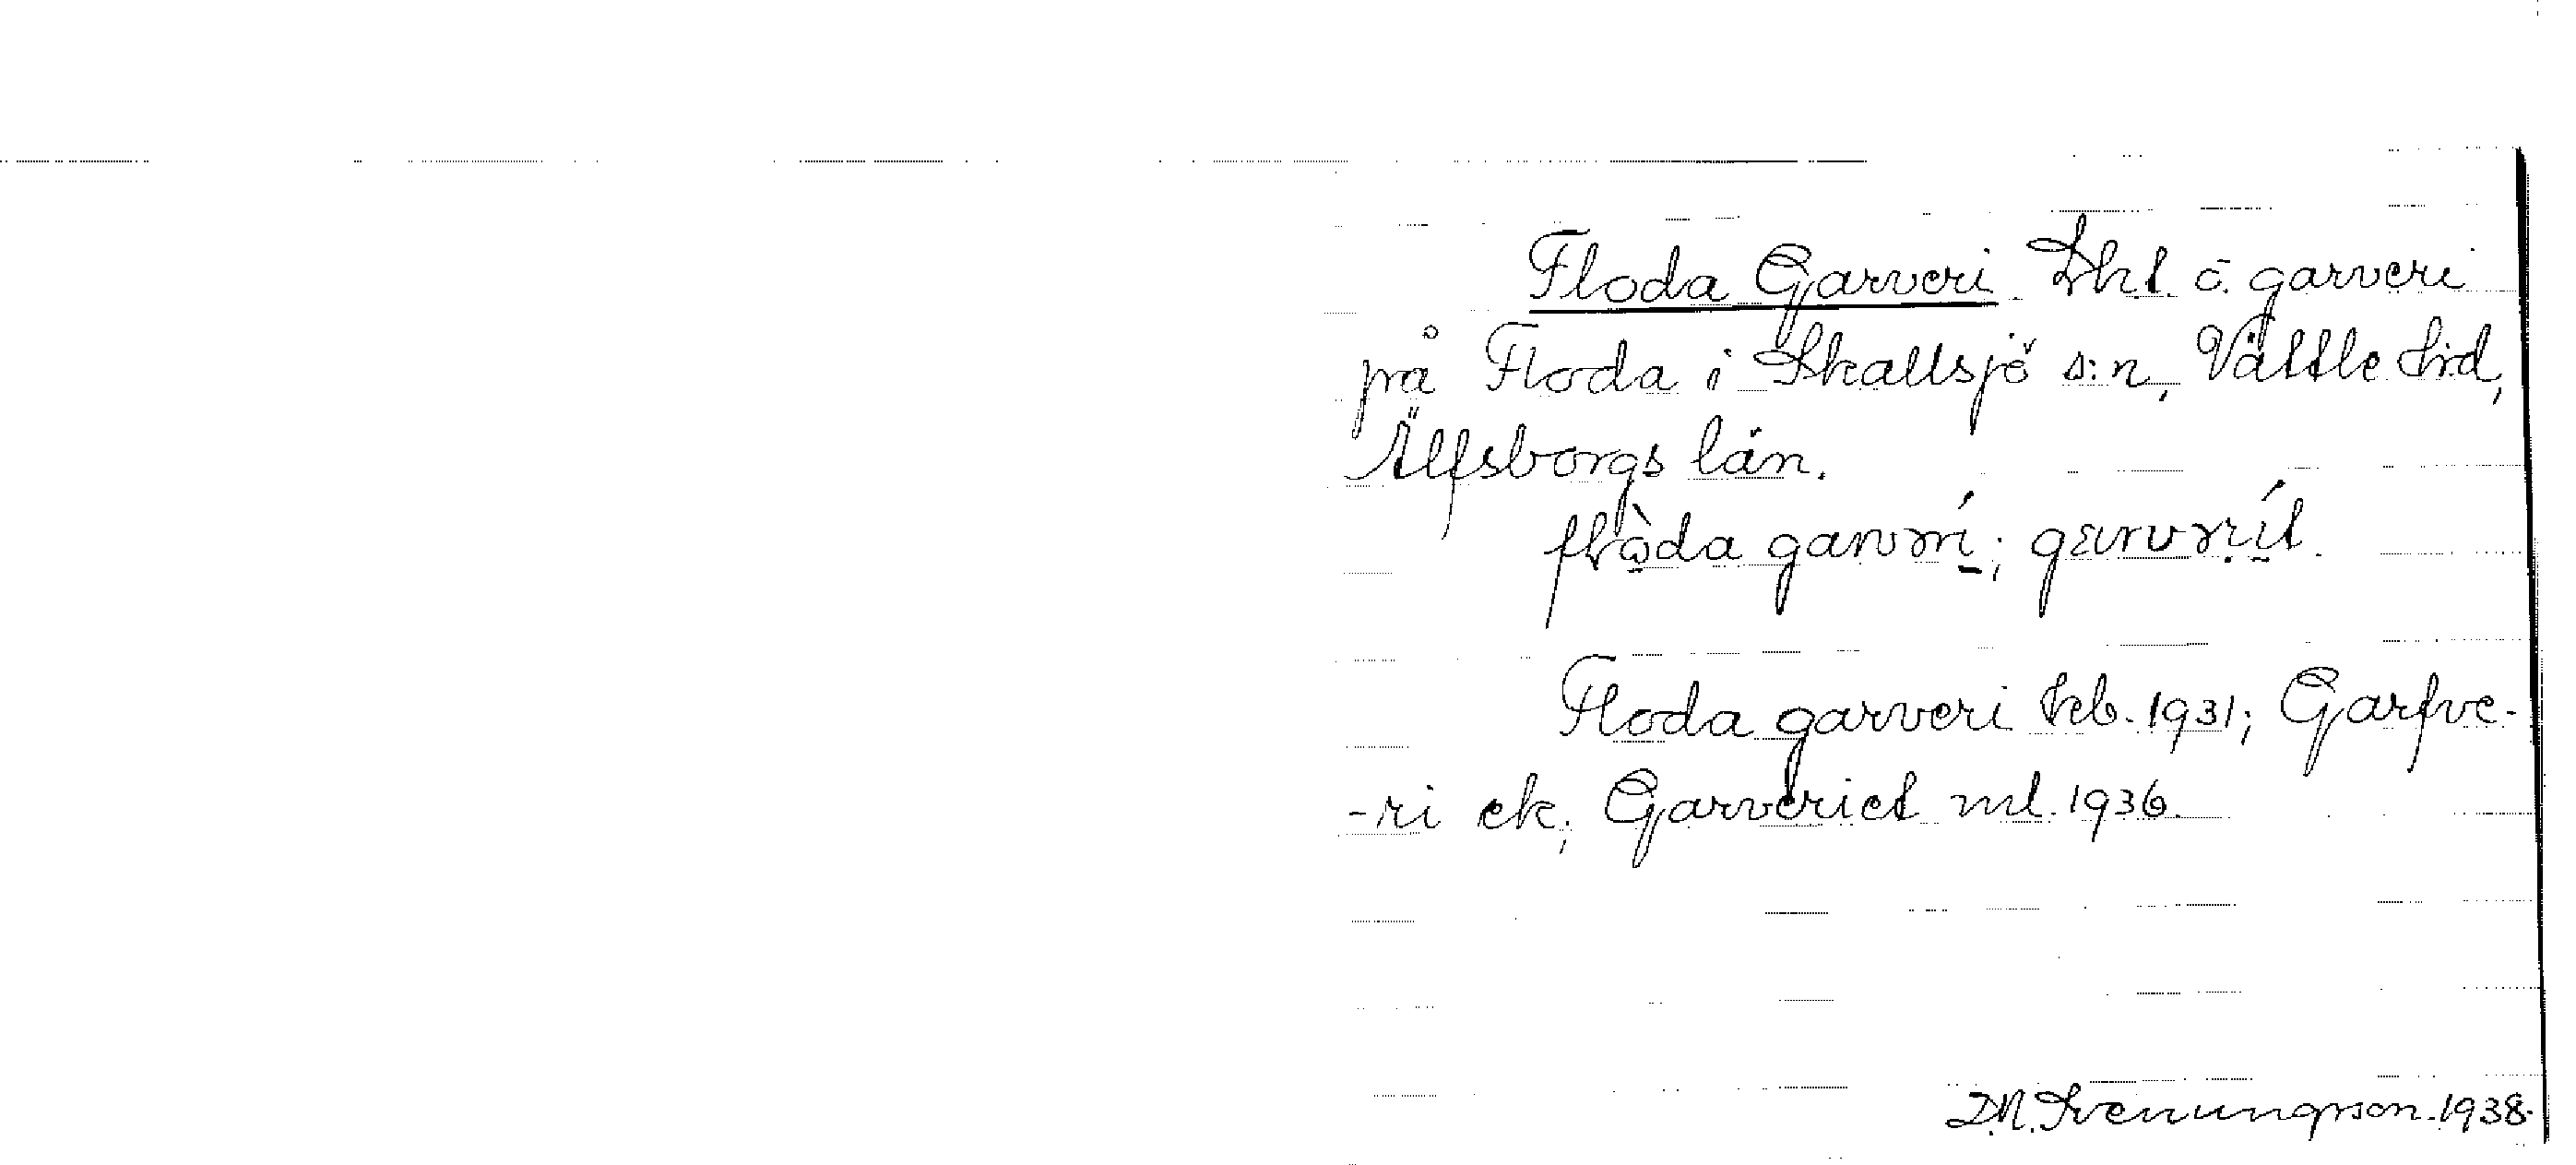 Floda Garveri. Lht. o. garveri
på Floda i Skallsjö s:n, Vättle hd,
Älfsborgs län.
flòda garvrí; garvrít.
Floda garveri teb. 1931; Garfve-
-ri ek; Garveriet ml. 1936.
D.N. Svenungsson. 1938.